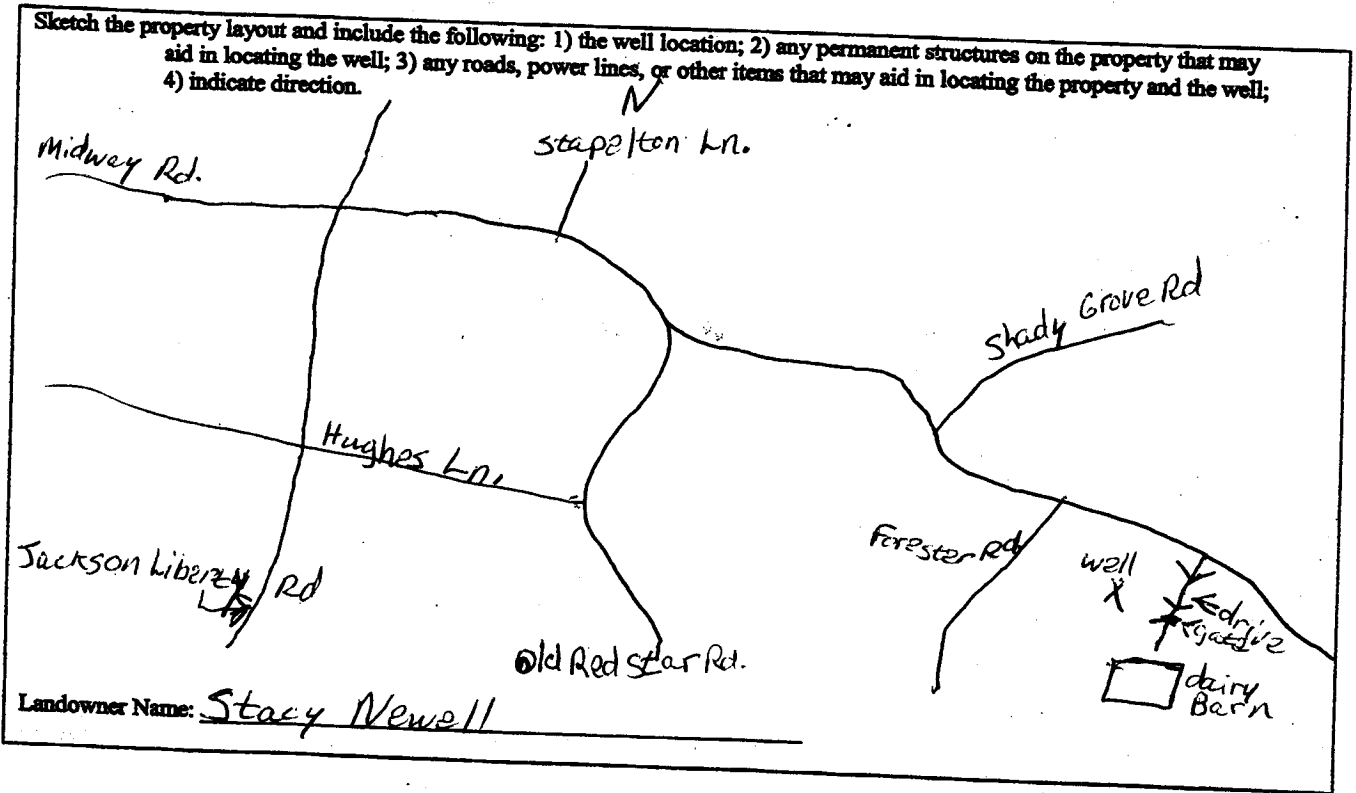 Sketch the property layout and include the following: 1) the well location; 2) any permanent structures on the property that may
aid in locating the well; 3) any roads, power lines, or other items that may aid in locating the property and the well;
4) indicate direction.
N
Stapelton Ln.
Midway Rd.
Shady Grove Rd
Hughes Ln.
Forester Rd
well
X
drive
gate
Jackson Liberty Rd
Old Red Star Rd.
dairy
Barn
Landowner Name: Stacy Newell